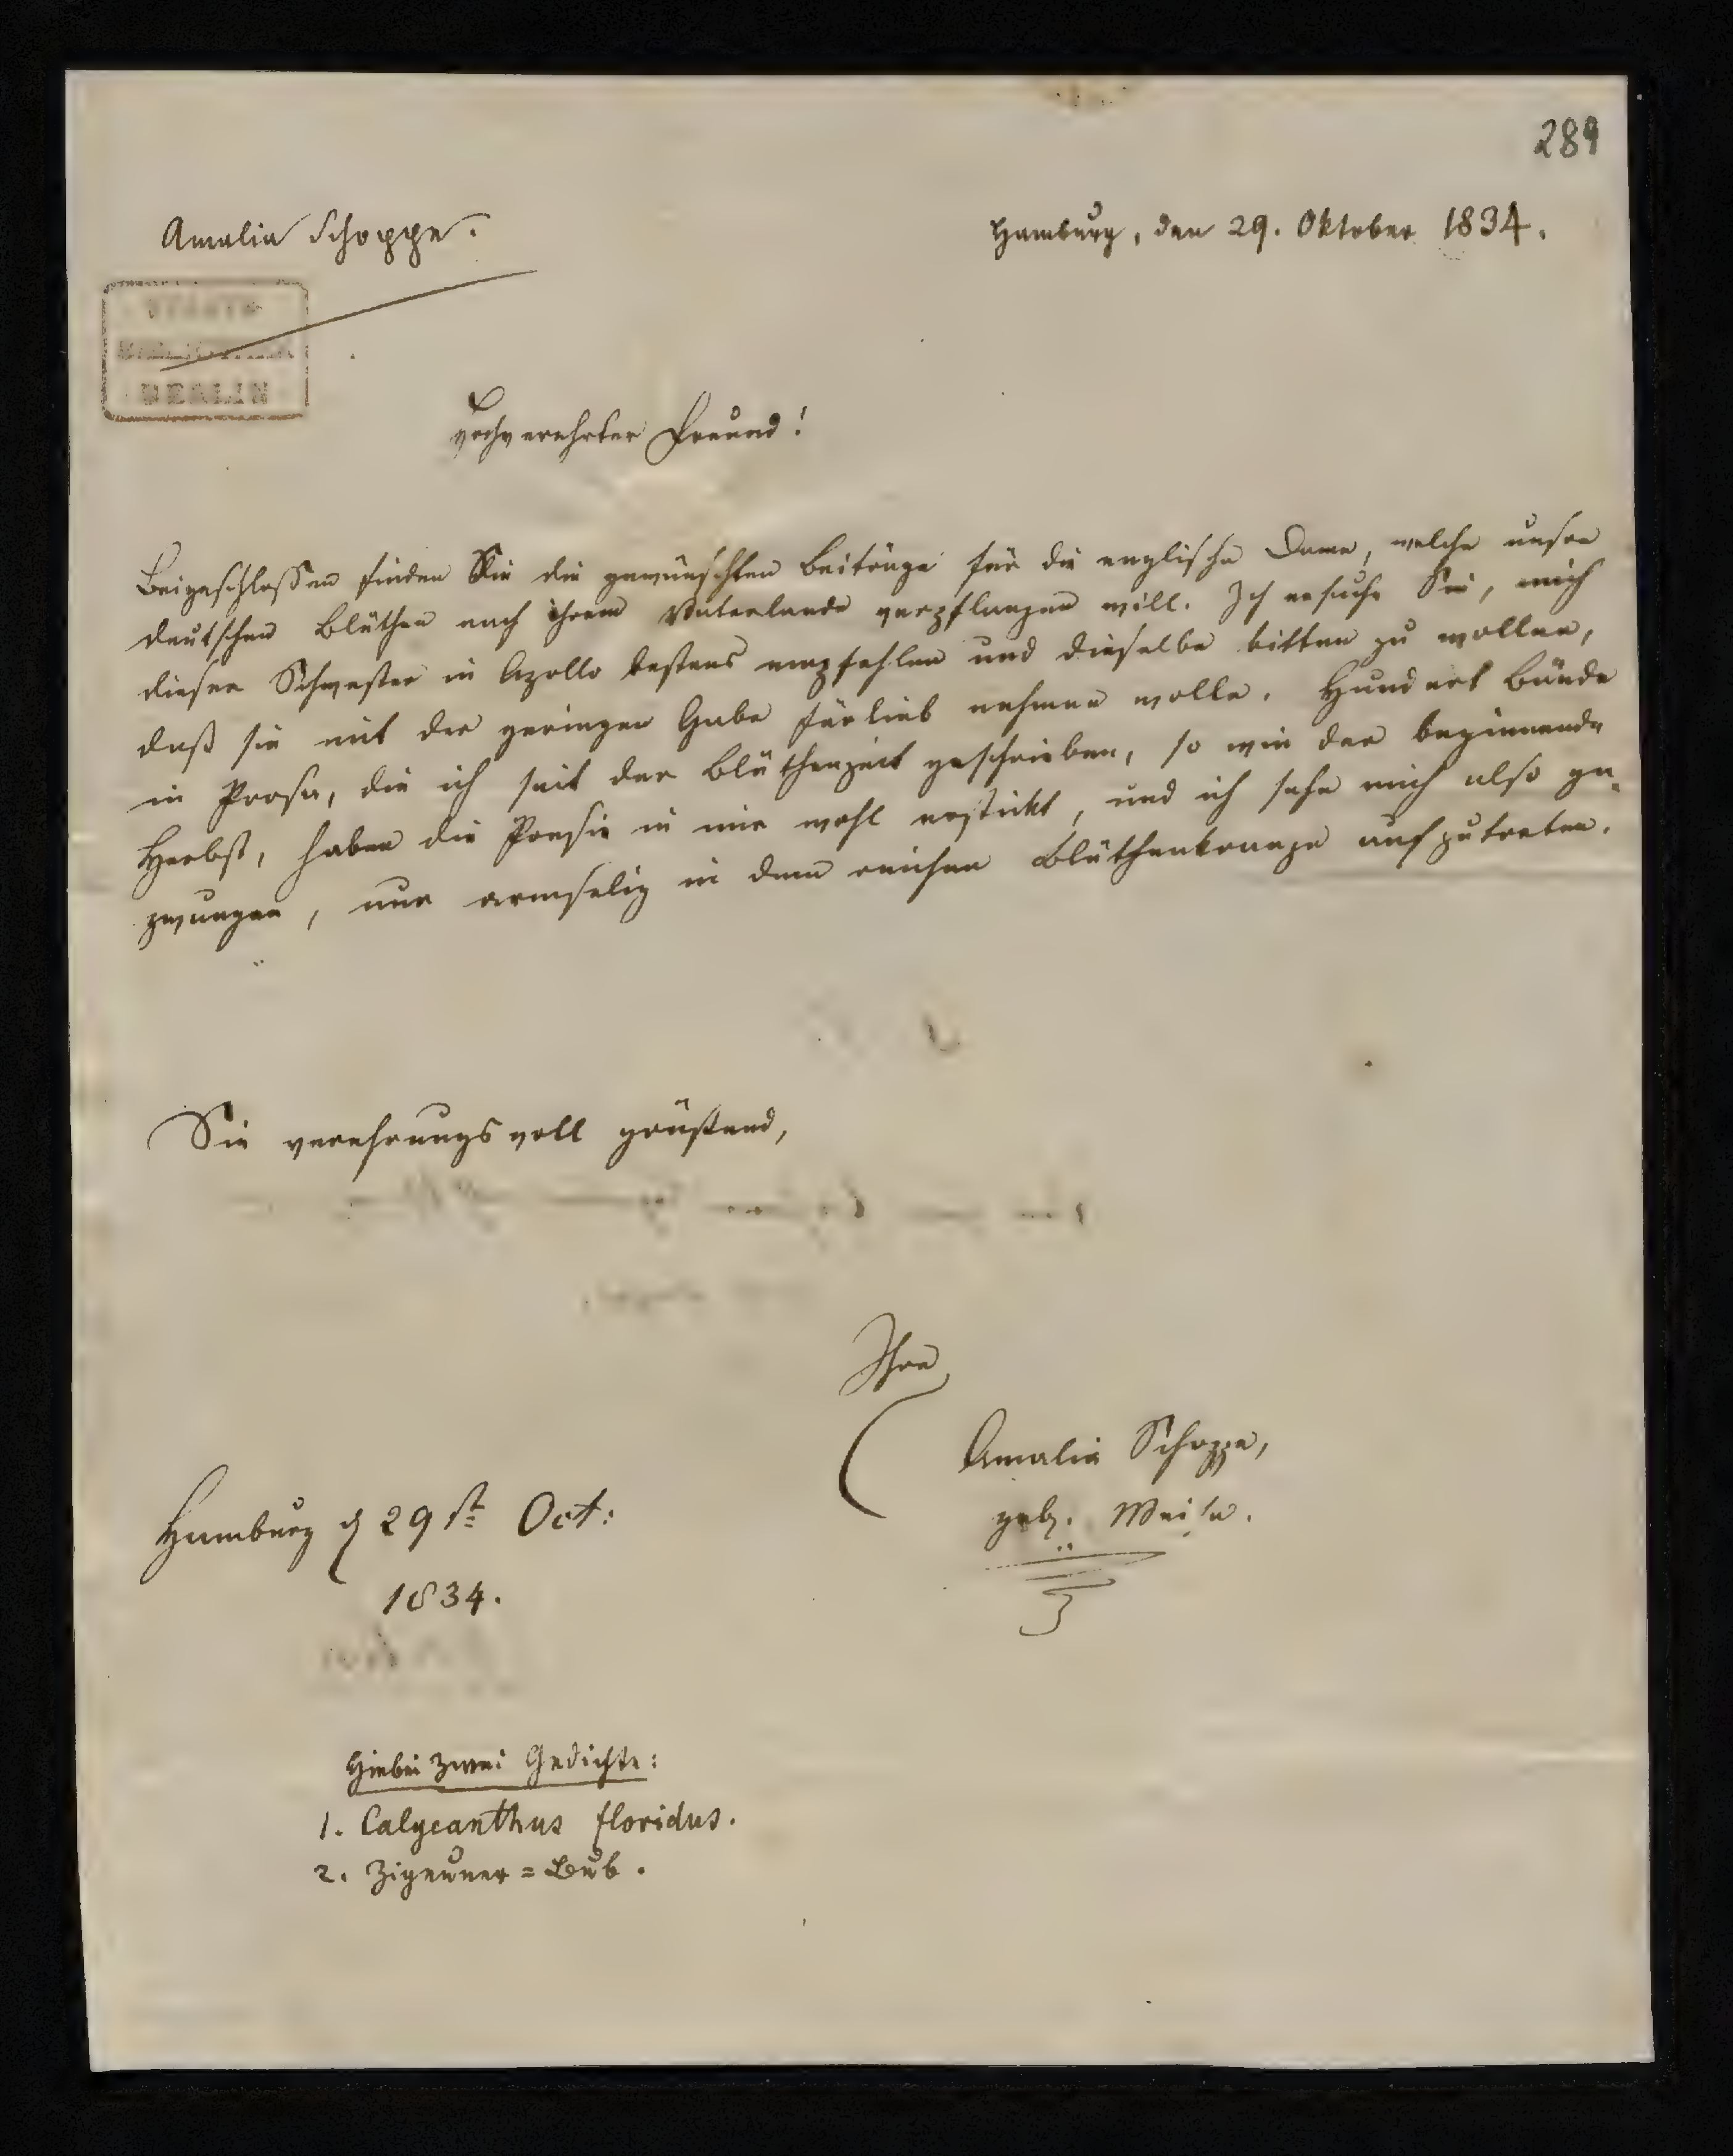 289
Amalia Schoppe.
Hamburg, den 29. Oktober 1834.
BERLIN
Hochverehrter Freund!
Beigeschlossen finden Sie die gewünschten Beiträge für die englische Dame, welche unsre
deutschen Blüthen nach ihrem Vaterlande verpflanzen will. Ich ersuche Sie, mich
dieser Schwester in Apollo bestens empfehlen und dieselbe bitten zu wollen,
daß sie mit der geringen Gabe fürlieb nehmen wolle. Hundert Bände
in Prosa, die ich seit der Blüthenzeit geschrieben, so wie der beginnende
Herbst, haben die Poesie in mir wohl erstickt, und ich sehe mich also ge-
zwungen, nur armselig in dem reichen Blüthenkranze aufzutreten.
Sie verehrungsvoll grüßend,
Ihre
Amalia Schoppe,
geb. Weise.
Hamburg d 29st Oct:
1834.
Hiebei zwei Gedichte:
1. Calycanthus floridus.
2. Zigeuner=Bub.